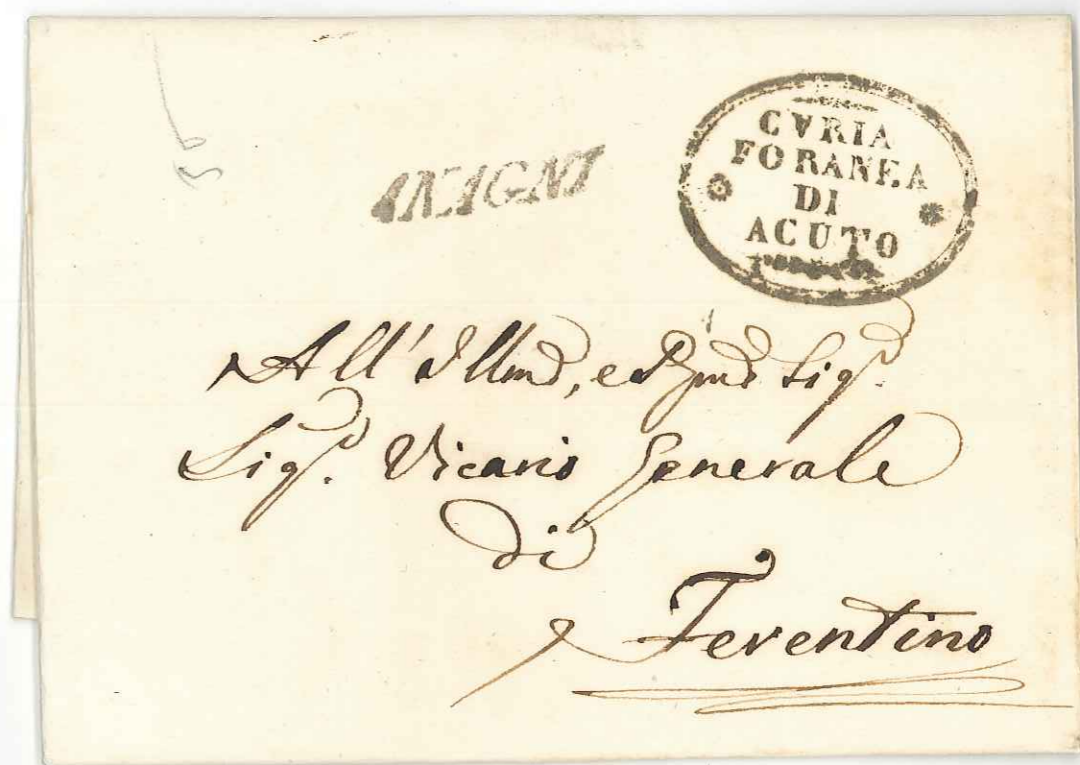 ANAGNI
CVRIA
FORANEA
DI
ACUTO
All'Illmo, e Rmo Sigr.
Sigr. Vicario Generale
di
Ferentino